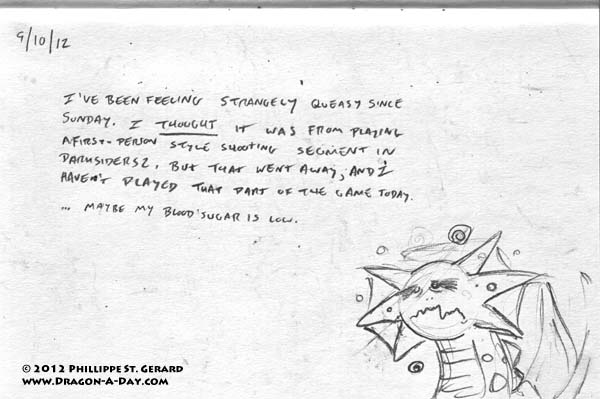 9/10/12
I'VE BEEN FEELING STRANGELY QUEASY SINCE
SUNDAY. I THOUGHT IT WAS FROM PLAYING
A FIRST-PERSON STYLE SHOOTING SEGMENT IN
DARKSIDERS2, BUT THAT WENT AWAY, AND I
HAVEN'T PLAYED THAT PART OF THE GAME TODAY.
... MAYBE MY BLOOD SUGAR IS LOW.
© 2012 PHILLIPPE ST. GERARD
WWW.DRAGON-A-DAY.COM